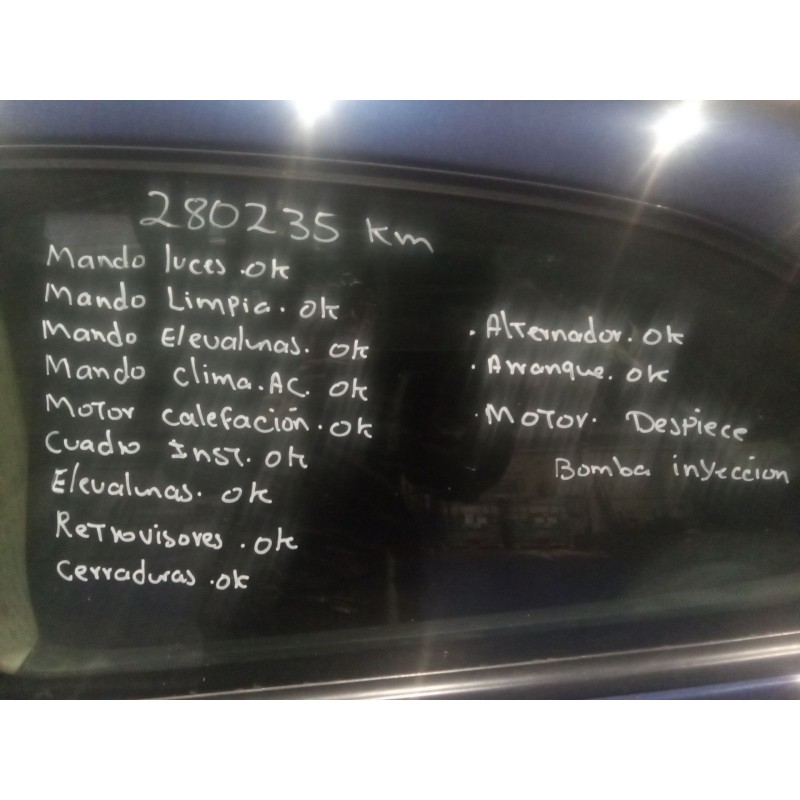 280235 km
Mando luces. ok
Mando Limpia. ok
Mando Elevalunas. ok
Mando clima. AC. ok
Motor calefación. ok
Cuadro Inst. ok
Elevalunas. ok
Retrovisores. ok
Cerraduras. ok
. Alternador. ok
. Arranque. ok
. Motor. Despiece
Bomba inyeccion